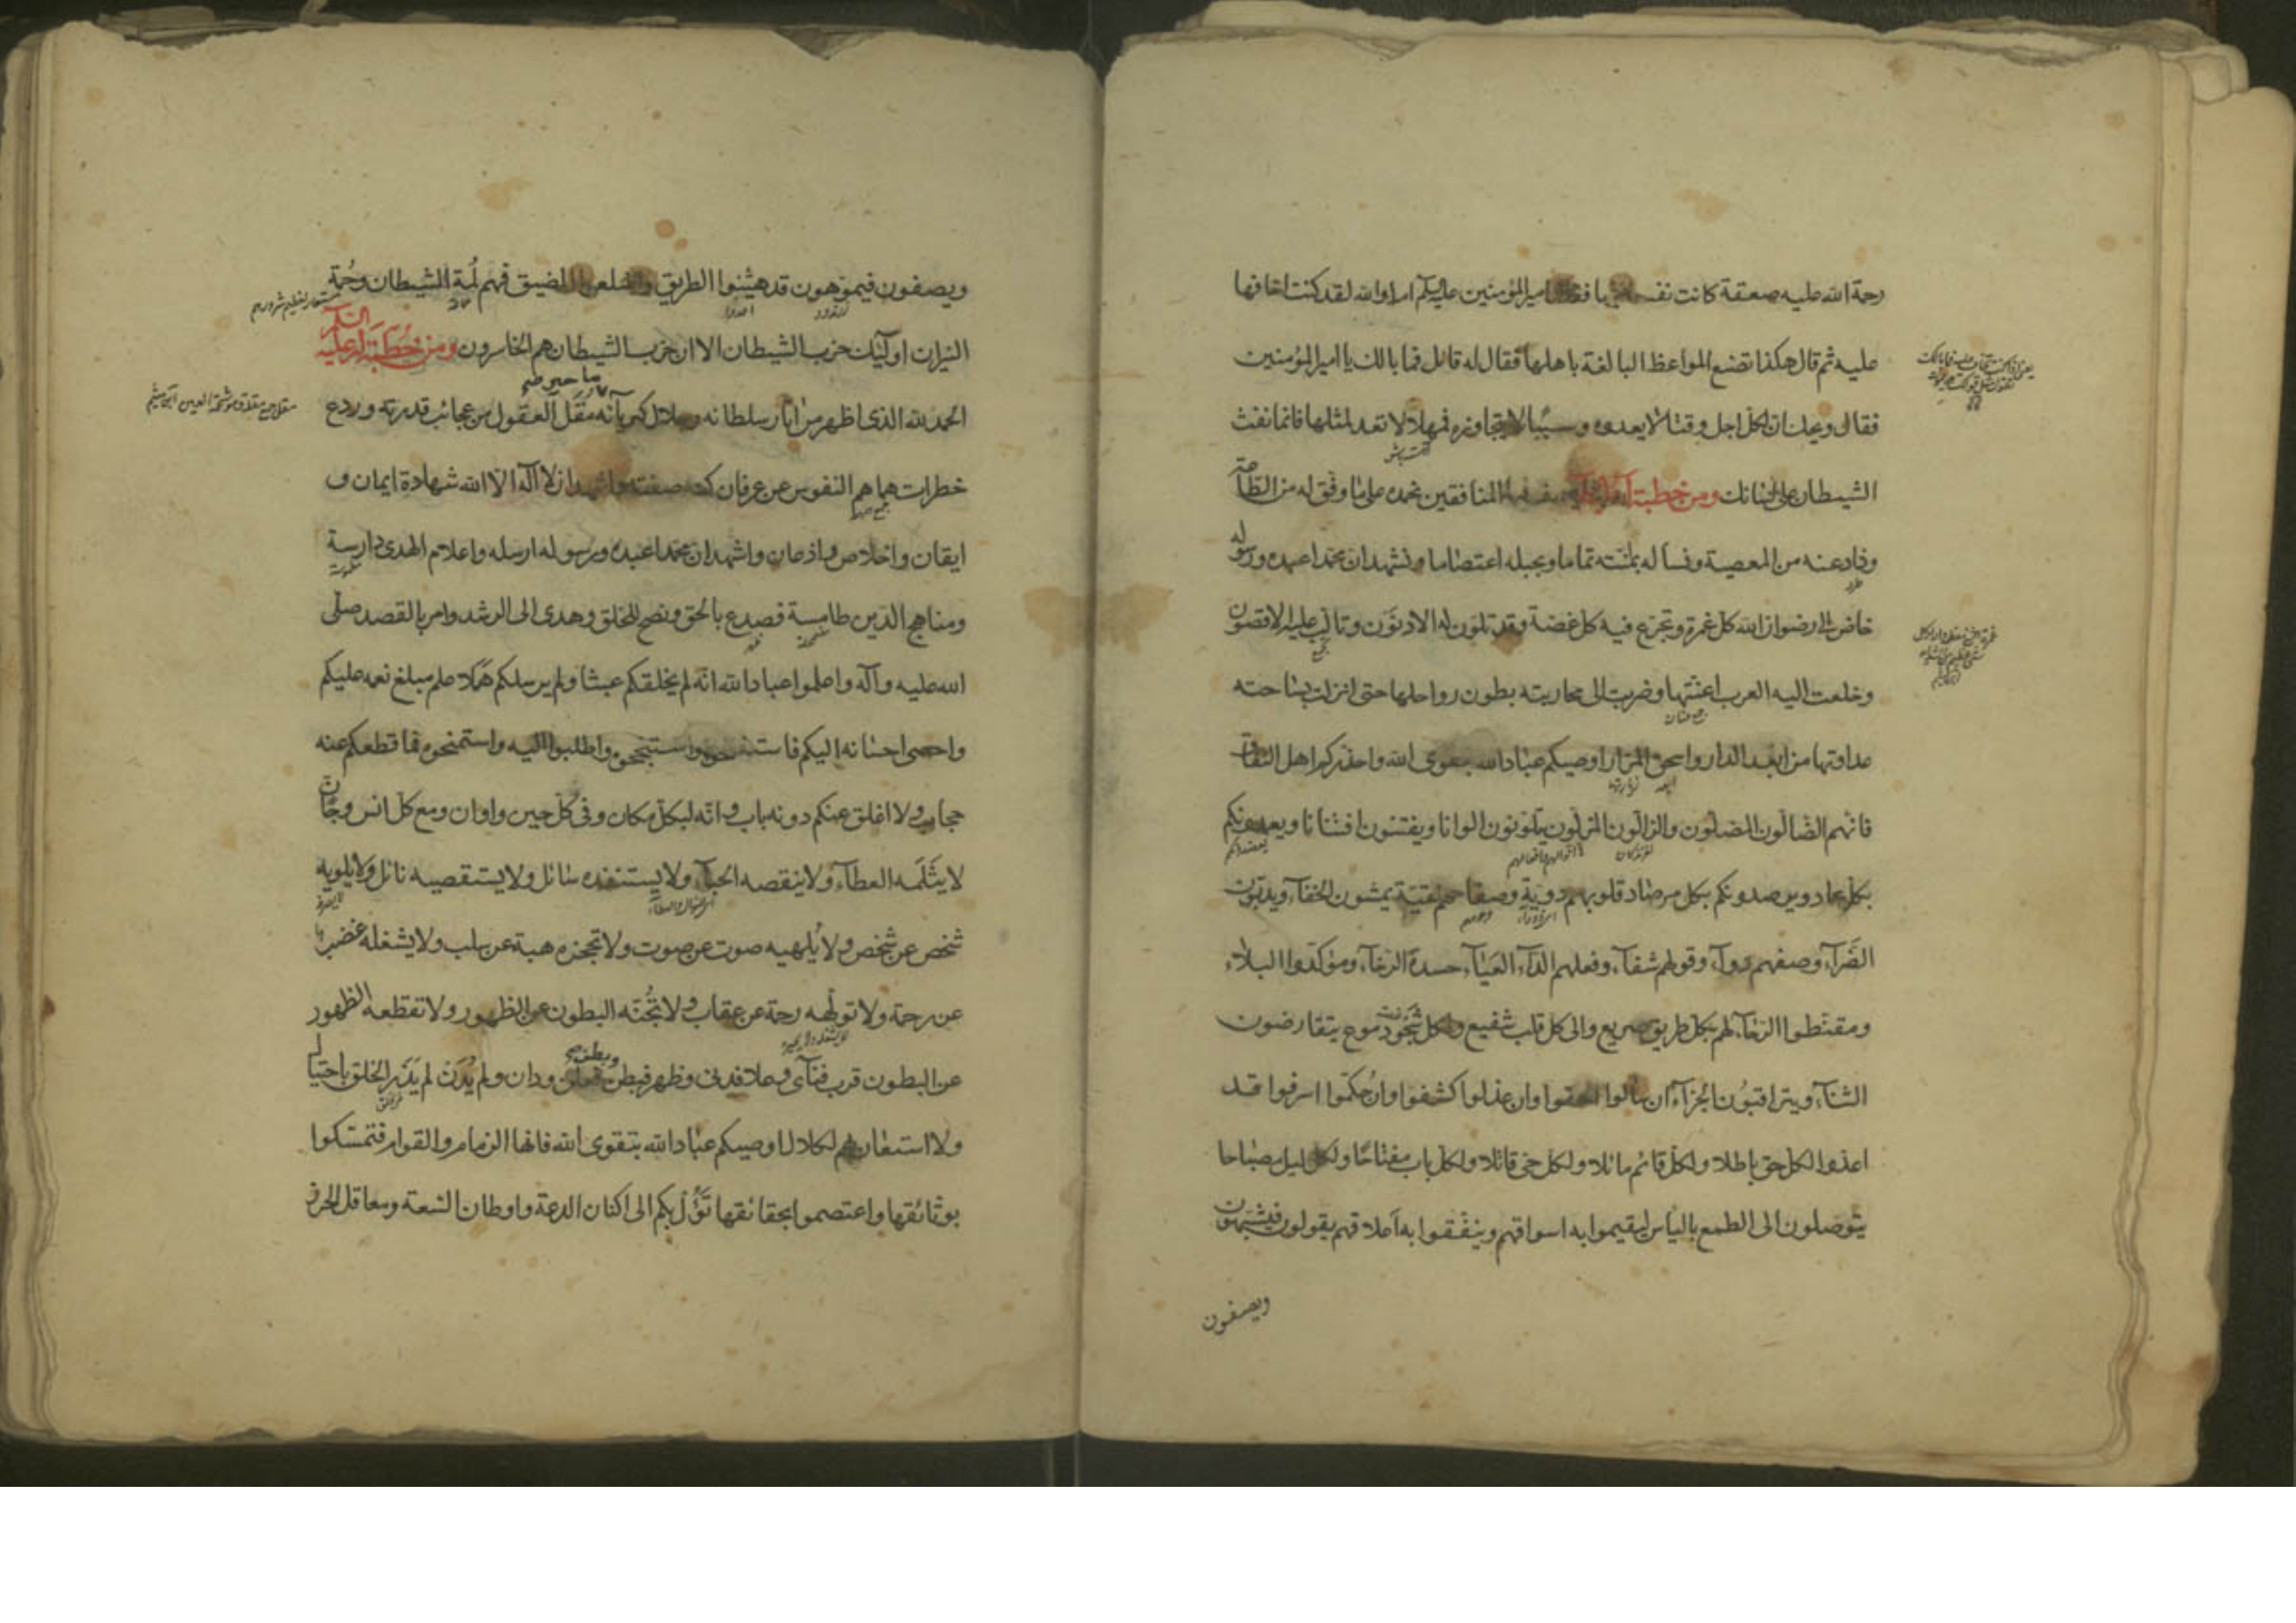 رحمة الله عليه صعقة كانت نفسه فيها فقال امير المؤمنين عليه السلم اما والله لقد كنت اخافها
عليه ثم قال هكذا تصنع المواعظ البالغة باهلها فقال له قائل فما بالك يا امير المؤمنين
فقال ويحك ان لكل اجل وقتا لا يعدوه وسببا لا يتجاوزه فمهلا لا تعد لمثلها فانما نفث
الشيطان على لسانك ومن خطبة المنافقين نحمده على ما وفق له من الطاعة
وذاد عنه من المعصية ونسأله لمنته تماما وبحبله اعتصاما ونشهد ان محمدا عبده ورسوله
خاض الى رضوان الله كل غمرة وتجرع فيه كل غصة وقد تلون له الادنون وتالب عليه الاقصون
وخلعت اليه العرب اعنتها وضربت الى محاربته بطون رواحلها حتى انزلت بساحته
عداوتها من ابعد الدار واسحق المزار اوصيكم عباد الله بتقوى الله واحذركم اهل النفاق
فانهم الضالون المضلون والزالون المزلون يتلونون الوانا ويفتنون افتنانا ويعمدونكم
بكل عماد ويرصدونكم بكل مرصاد قلوبهم دوية وصفاحهم نقية يمشون الخفاء ويدبون
الضراء وصفهم دواء وقولهم شفاء وفعلهم الداء العياء حسدة الرخاء ومؤكدوا البلاء
ومقنطوا الرخاء لهم بكل طريق صريع والى كل قلب شفيع ولكل شجو دموع يتقارضون
الثناء ويتراقبون الجزاء ان سألوا الحفوا وان عذلوا كشفوا وان حكموا اسرفوا قد
اعدوا لكل حق باطلا ولكل قائم مائلا ولكل حى قاتلا ولكل باب مفتاحا ولكل ليل مصباحا
يتوصلون الى الطمع بالياس ليقيموا به اسواقهم وينفقوا به اعلاقهم يقولون فيشبهون
ويصفون
ويصفون فيموهون قد هينوا الطريق واضلعوا المضيق فهم لمة الشيطان وحمة
النيران اولئك حزب الشيطان الا ان حزب الشيطان هم الخاسرون ومن خطبة له عليه السلم
الحمد لله الذى اظهر من اثار سلطانه وجلال كبريائه ما حير مقل العقول من عجائب قدرته وردع
خطرات هماهم النفوس عن عرفان كنه صفته واشهد ان لا اله الا الله شهادة ايمان و
ايقان واخلاص واذعان واشهد ان محمدا عبده ورسوله ارسله واعلام الهدى دارسة
ومناهج الدين طامسة فصدع بالحق ونصح للخلق وهدى الى الرشد وامر بالقصد صلى
الله عليه وآله واعلموا عباد الله انه لم يخلقكم عبثا ولم يرسلكم هملا علم مبلغ نعمه عليكم
واحصى احسانه اليكم فاستفتحوه واستنجحوه واطلبوا اليه واستمنحوه فما قطعكم عنه
حجاب ولا اغلق عنكم دونه باب وانه لبكل مكان وفى كل حين واوان ومع كل انس وجان
لا يثلمه العطاء ولا ينقصه الحباء ولا يستنفده سائل ولا يستقصيه نائل ولا يلويه
شخص عن شخص ولا يلهيه صوت عن صوت ولا تحجزه هبة عن سلب ولا يشغله غضب
عن رحمة ولا تولهه رحمة عن عقاب ولا تجنه البطون عن الظهور ولا تقطعه الظهور
عن البطون قرب فنأى وعلا فدنى وظهر فبطن وبطن فعلن ودان ولم يدن لم يذرء الخلق باحتيال
ولا استعان بهم لكلال اوصيكم عباد الله بتقوى الله فانها الزمام والقوام فتمسكوا
بوثائقها واعتصموا بحقائقها تؤل بكم الى اكنان الدعة واوطان السعة ومعاقل الحرز